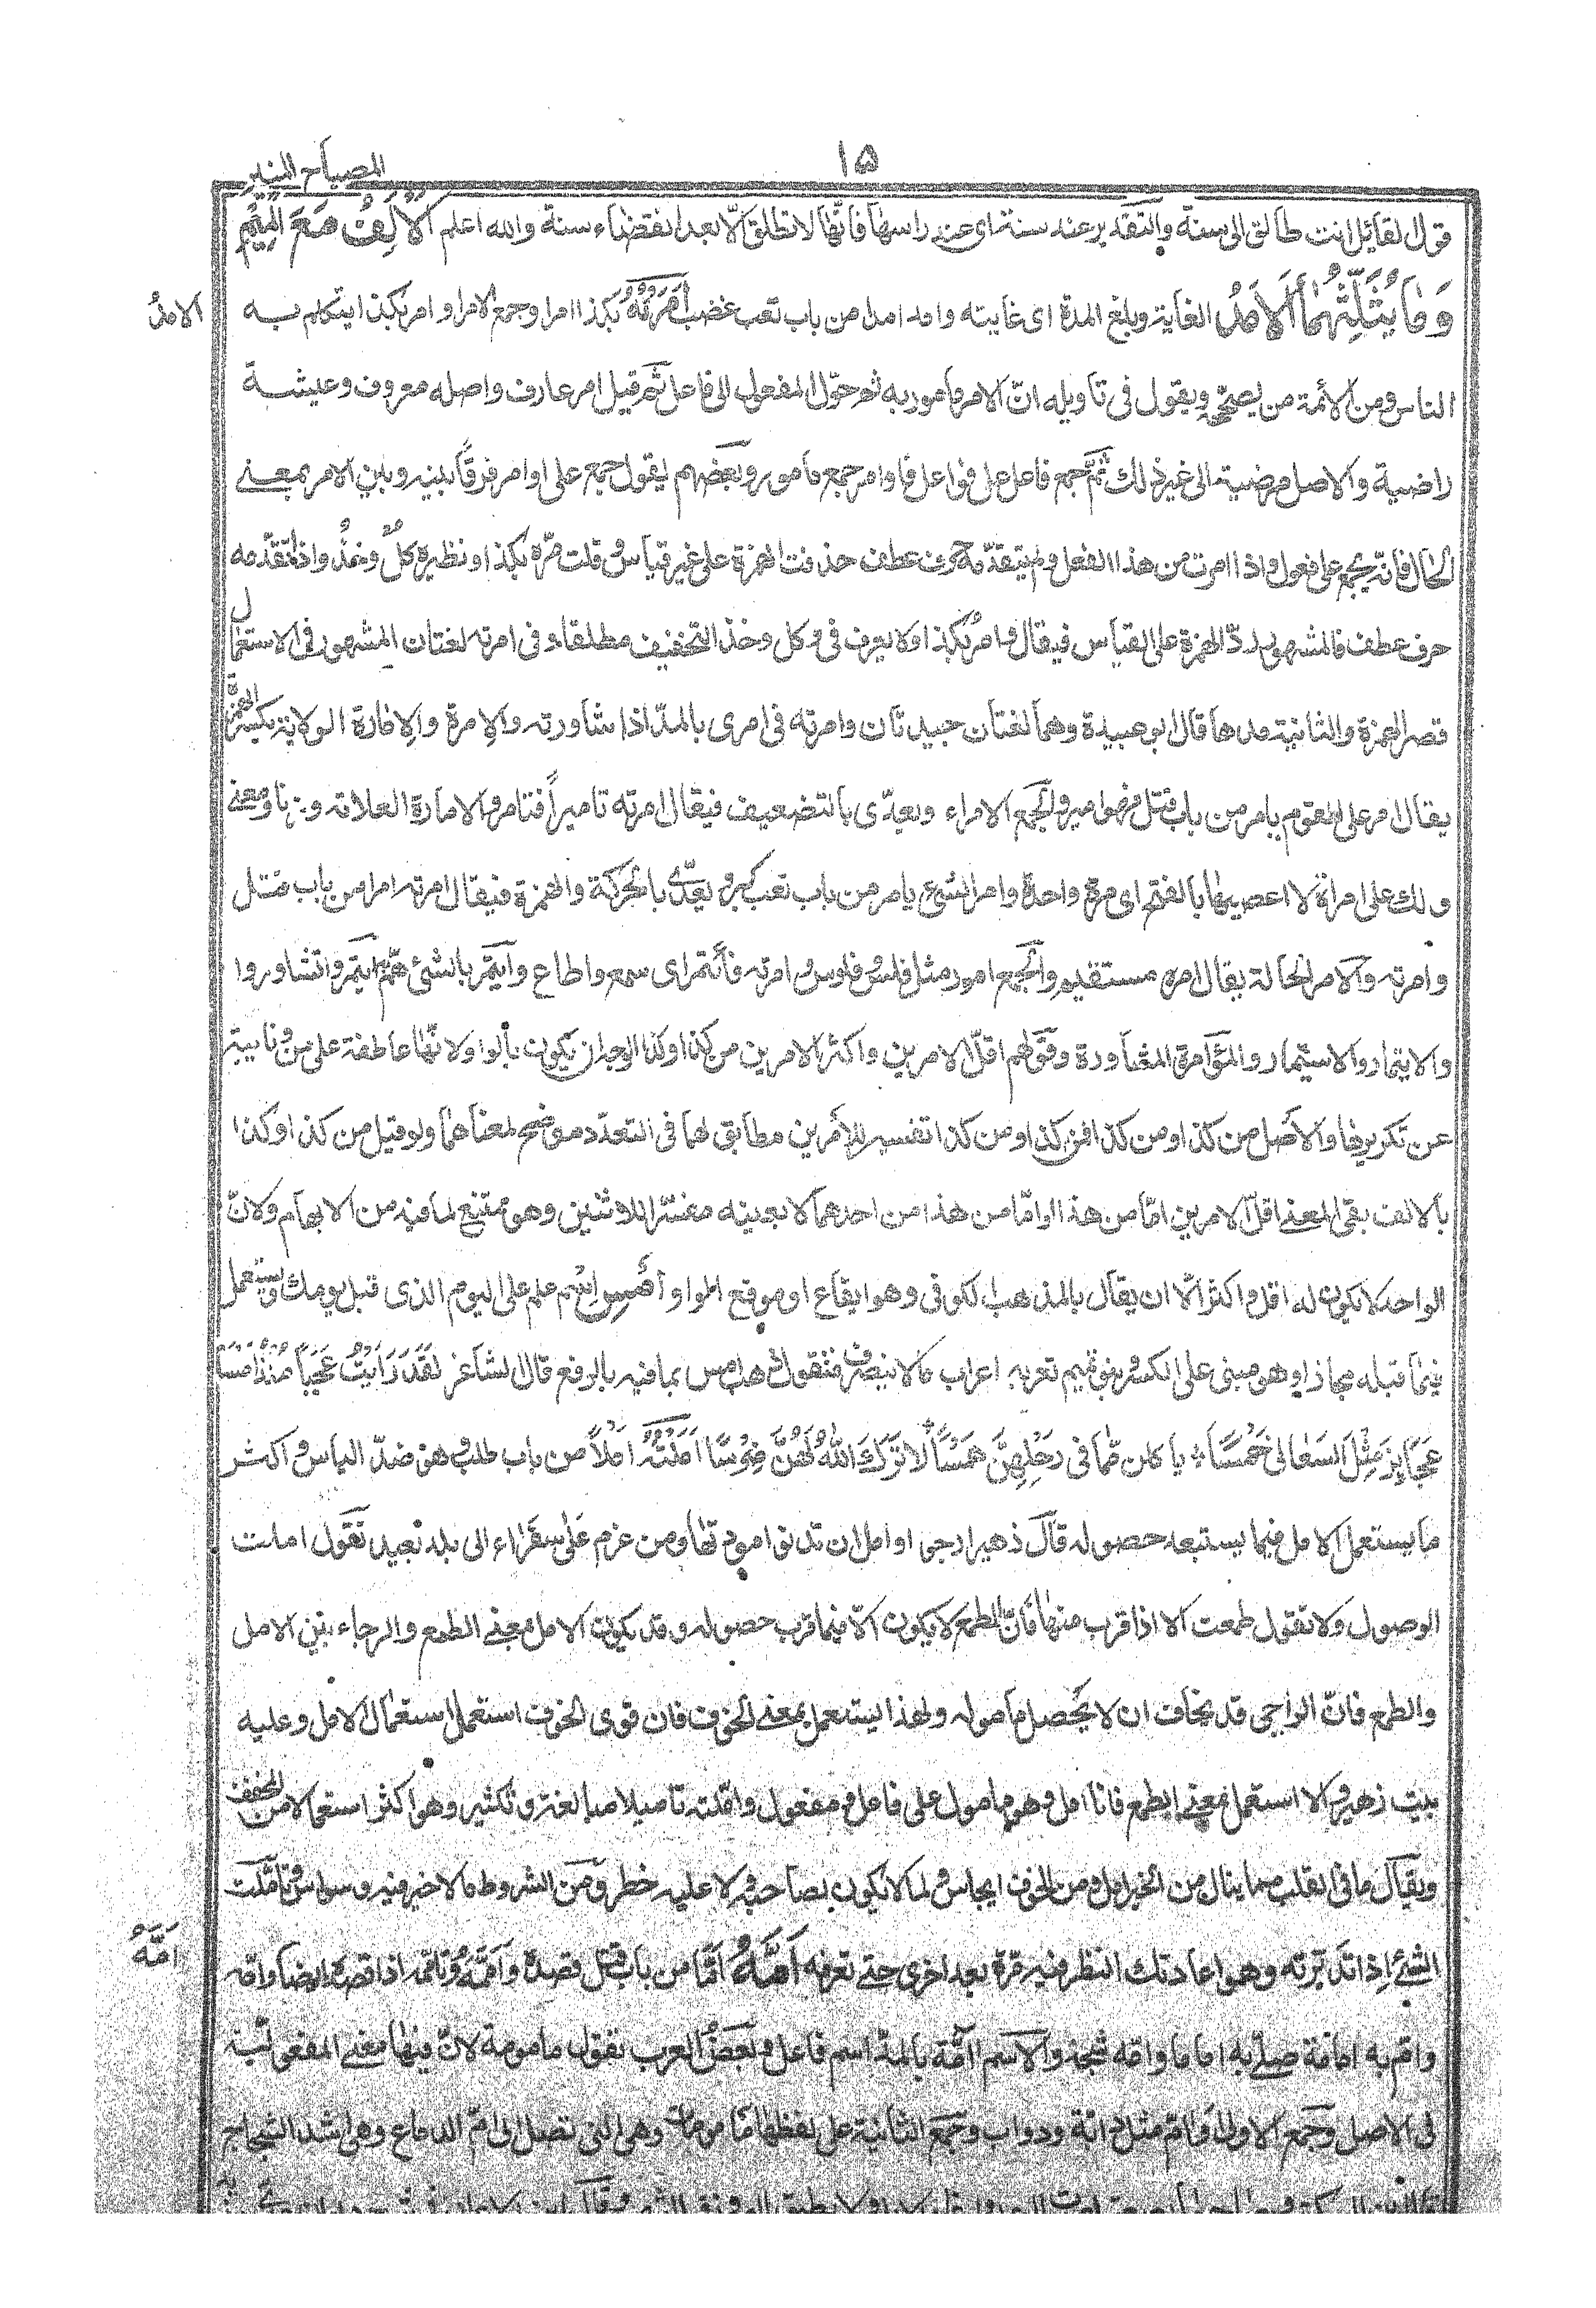 ١٥
المصباح المنير
قول القائل انت طالق الى سنة والتقدير عند سنة اى عند راسها فانّها لا تطلق الّا بعد انقضاء سنة والله اعلم الْاَلِفُ مَعَ الْمِيْمِ
وَمَا يُثَلِّثُهُمَا اَلْاَمَدُ الغاية وبلغ المدة اى غايته وامد امدا من باب تعب غضب اَمَرْتُهُ بكذا امرا وجمع الامر اوامر بكذا يتكلم به
الامدُ
الناس ومن الأئمة من يصحّحه ويقول فى تاويله انّ الامر مامور به ثم حوّل المفعول الى فاعل ثم قيل امر عارف واصله معروف وعيشة
راضية والاصل مرضية الى غير ذلك ثمّ جمع فاعل على فواعل فاوامر جمع مامور وبعضهم يقول جمع على اوامر فرقًا بينه وبين الامر بمعنى
الحال فانّه يجمع على فعول واذا امرت من هذا الفعل ولم يتقدّمه حرف عطف حذفت الهمزة على غير قياس وقلت مره بكذا ونظيره كُلْ وخُذْ واذا تقدّمه
حرف عطف فالمشهور ردّ الهمزة على القياس فيقال وامُر بكذا ولا يعرف فى كل وخذ الا التخفيف مطلقا وفى امرته لغتان المشهور فى الاستعمال
قصر الهمزة والثانية مدها قال ابو عبيدة وهما لغتان جيدتان وامرته فى امرى بالمدّ اذا شاورته والامرة والامارة الولاية بكسر الهمزة
يقال امر على القوم يامر من باب قتل فهو امير والجمع الامراء ويعدّى بالتضعيف فيقال امرته تاميرا فتامر والامارة العلامة وزنا ومعنى
ولك على امرة لا اعصيها بالفتح اى مرة واحدة وامر الشئ يامر من باب تعب كبر ويعدّى بالحركة والهمزة فيقال امرته امرا من باب قتل
وامرته والامر الحالة يقال امره مستقيم والجمع امور مثل فلس وفلوس وامرته فأتمر اى سمع واطاع وأيتمر بالشئ همّ به وايتمروا تشاوروا
والايتمار والاستيمار والمؤامرة المشاورة وقولهم اقلّ الامرين واكثر الامرين من كذا وكذا الوجه ان يكون بالواو لانّها عاطفة على من ونايبة
عن تكريرها والاصل من كذا ومن كذا فمن كذا ومن كذا تفسير للأمرين مطابق لهما فى التعدّد موضح لمعناهما ولو قيل من كذا او كذا
بالالف بقى المعنى اقلّ الامرين امّا من هذا وامّا من هذا من احدهما لا بعينه مفسّرا للاثنين وهو ممتنع لما فيه من الابهام ولانّ
الواحد لا يكون له اقل واكثر الّا ان يقال بالمذهب الكوفى وهو ايقاع او موقع الواو أَمْسِ اسم علم على اليوم الذى قبل يومك ويستعمل
فيما قبله مجازا وهو مبنى على الكسر وبنو تميم تعربه اعراب ما لا ينصرف فتقول ذهب امس بما فيه بالرفع قال الشاعر لَقَدْ رَاَيْتُ عَجَبًا مُذْ اَمْسَا
عَجَائِزَ مِثْلَ السَعَالى خَمْسَا * ياكلن ممّا فى رحْلِهِنَّ هَمْسَا لَا تَرَكَ اللهُ لَهُنَّ ضِرْسَا اَمَلْتُهُ اَملاً من باب طلب وهو ضدّ الياس واكثر
ما يستعمل الامل فيما يستبعد حصوله قال زهير ارجو وامل ان تدنو امودتها ومن عزم على سفر الى بلد بعيد تقول املت
الوصول ولا تقول طمعت الا اذا قرب منها فانّ الطمع لا يكون الّا فيما قرب حصوله وقد يكون الامل بمعنى الطمع والرجاء بين الامل
والطمع فانّ الراجى قد يخاف ان لا يحصل مأموله ولهذا يستعمل بمعنى الخوف فان قوى الخوف استعمل استعمال الامل وعليه
بيت زهير والا استعمل بمعنى الطمع فانا امل وهو مامول على فاعل ومفعول واملته تاميلا مبالغة وتكثير وهو اكثر استعمالا من المخفف
ويقال ما فى القلب مما ينال من الخير امل ومن الخوف ايجاس ولما لا يكون لصاحبه ولا عليه خطر ومن الشر وما لا خير فيه وسواس وتاملت
الشئ إذا تدبرته وهو اعادتك النظر فيه مرة بعد اخرى حتى تعرفه اَمَّهُ امّا من باب قتل قصده وأمّمه وتامّمه اذا قصده ايضا وامّه
اَمَّهُ
وامّ به امامة صلّى به اماما وامّه شجّه والاسم آمّة بالمدّ اسم فاعل وبعض العرب يقول مامومة لانّ فيها معنى المفعولية
فى الاصل وجمع الاولى اوامّ مثل دابّة ودواب وجمع الثانية على لفظها مامومات وهى التى تصل الى امّ الدماغ وهى اشد الشجاج